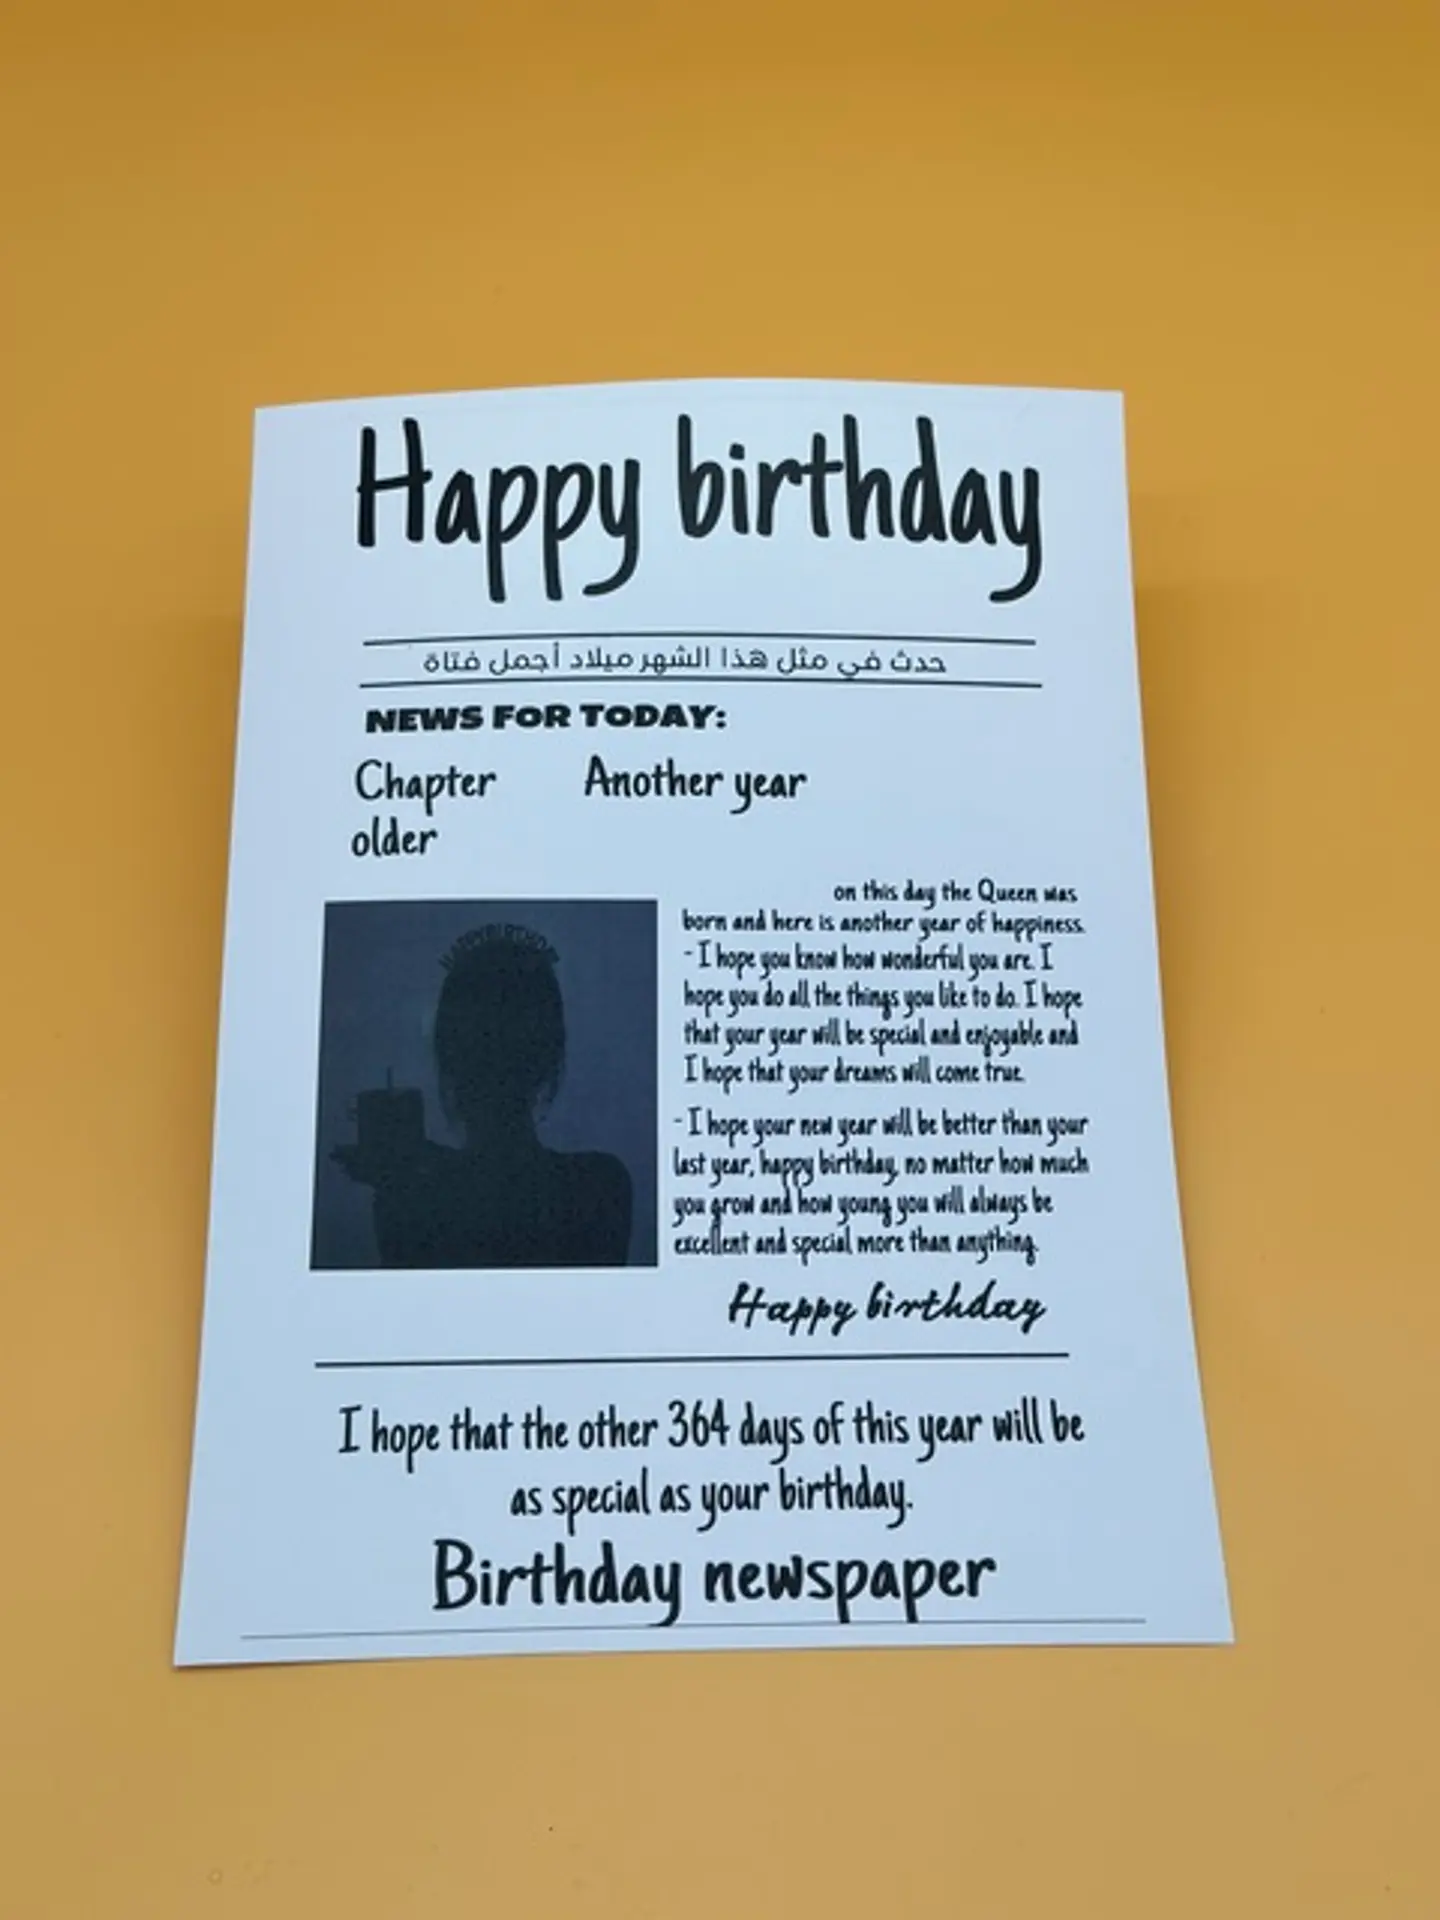 Happy birthday
حدث في مثل هذا الشهر ميلاد أجمل فتاة
NEWS FOR TODAY:
Chapter Another year
older
HAPPY BIRTHDAY
on this day the Queen was
born and here is another year of happiness.
- I hope you know how wonderful you are. I
hope you do all the things you like to do. I hope
that your year will be special and enjoyable and
I hope that your dreams will come true.
- I hope your new year will be better than your
last year, happy birthday, no matter how much
you grow and how young you will always be
excellent and special more than anything.
Happy birthday
I hope that the other 364 days of this year will be
as special as your birthday.
Birthday newspaper